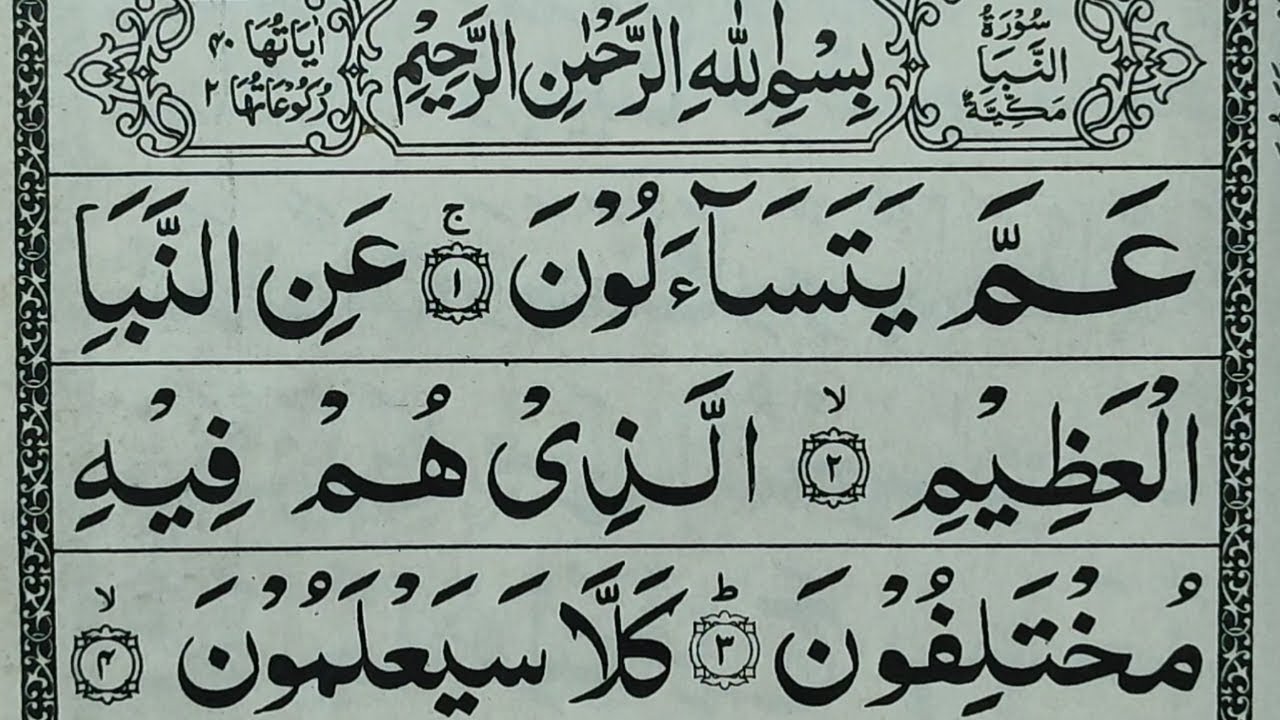 سُوْرَةُ
النَّبَاِ
مَكِّيَّةٌ
بِسْمِ اللّٰهِ الرَّحْمٰنِ الرَّحِيْمِ
اٰيَاتُهَا ۴۰
رُكُوْعَاتُهَا ۲
عَمَّ يَتَسَآءَلُوْنَ ۚ ﴿۱﴾ عَنِ النَّبَاِ
الْعَظِيْمِ ۙ ﴿۲﴾ الَّذِىْ هُمْ فِيْهِ
مُخْتَلِفُوْنَ ؕ ﴿۳﴾ كَلَّا سَيَعْلَمُوْنَ ۙ ﴿۴﴾